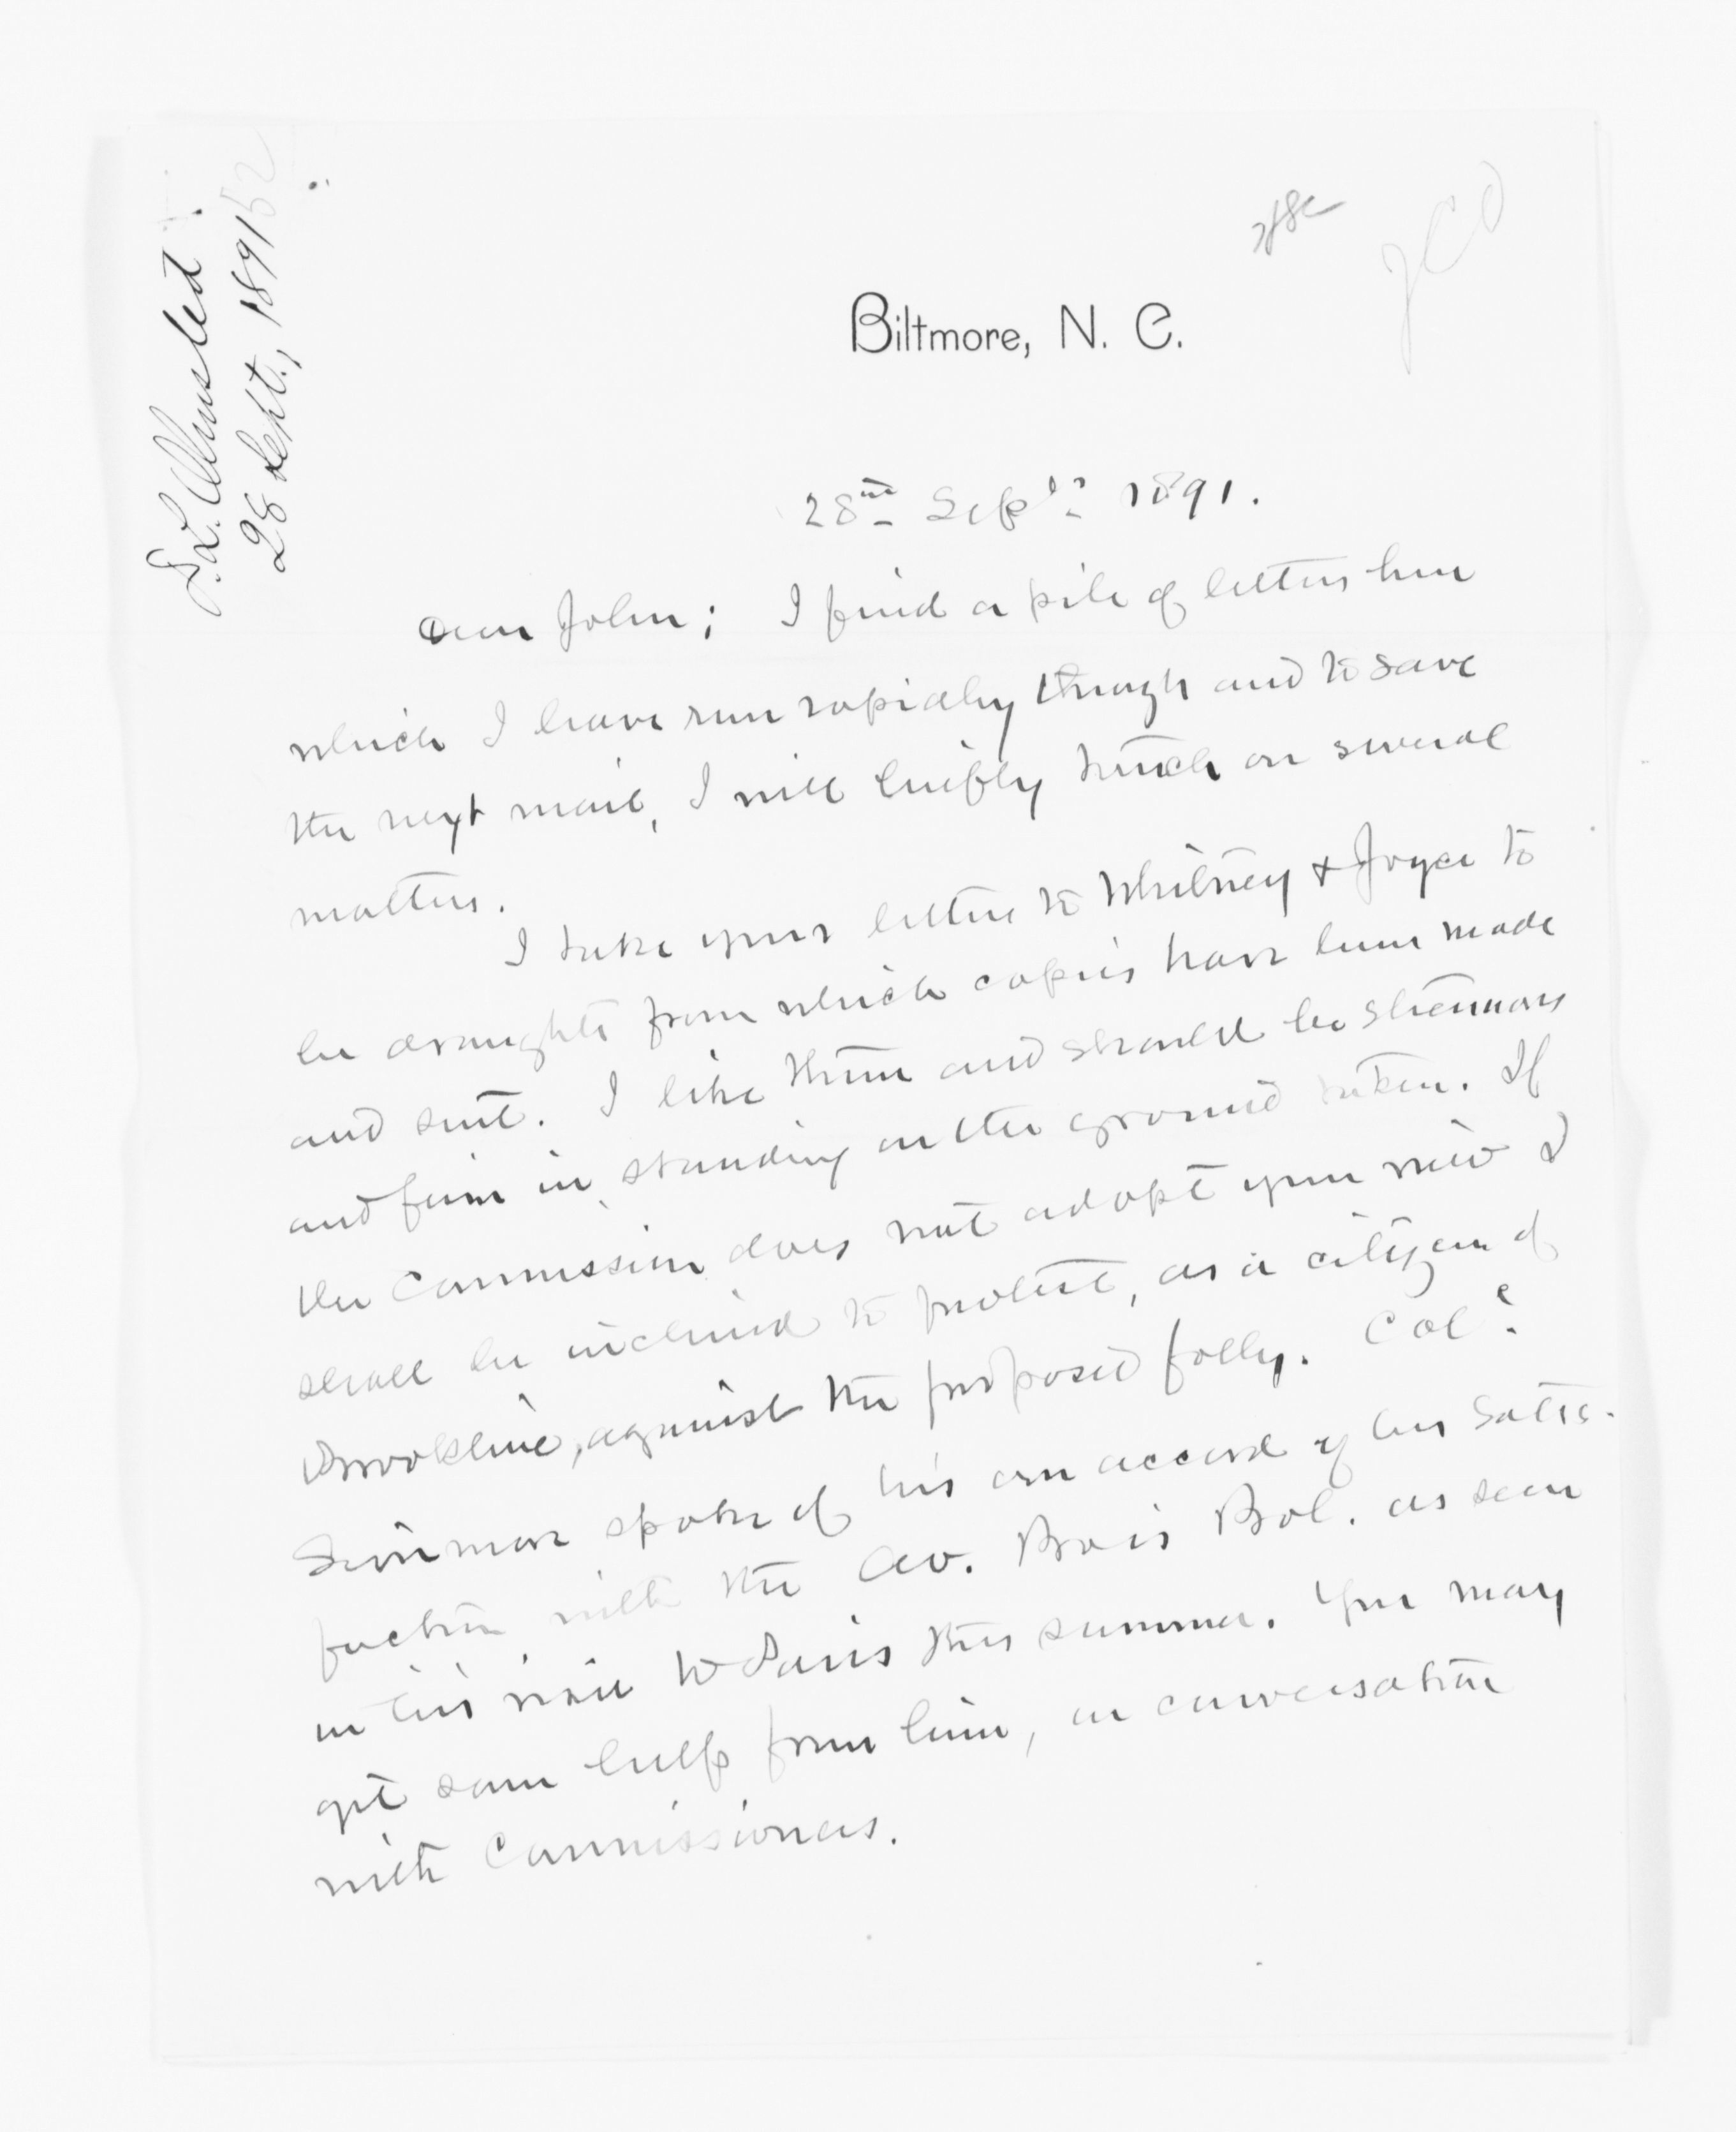 F. L. Olmsted
28 Sept., 1891
JCO
Biltmore, N. C.
28th Sept. 1891.
Dear John; I find a pile of letters here
which I have run rapidly through and to save
the next mail, I will briefly touch on several
matters.
I take your letters to Whitney & Joyce to
be draughts from which copies have been made
and sent. I like them and should be strenuous
and firm in standing on the ground taken. If
the Commission does not adopt your view I
shall be inclined to protest, as a citizen of
Brookline, against the proposed folly. Col.
spoke of his own accord of his satis-
faction with the Av. Bois Bol. as seen
in his visit to Paris this summer. You may
get some help from him, in conversation
with Commissioners.